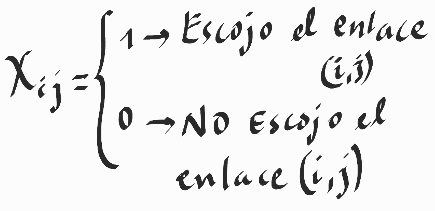 Xij = { 1 → Escojo el enlace
(i,j)
0 → NO Escojo el
enlace (i,j)